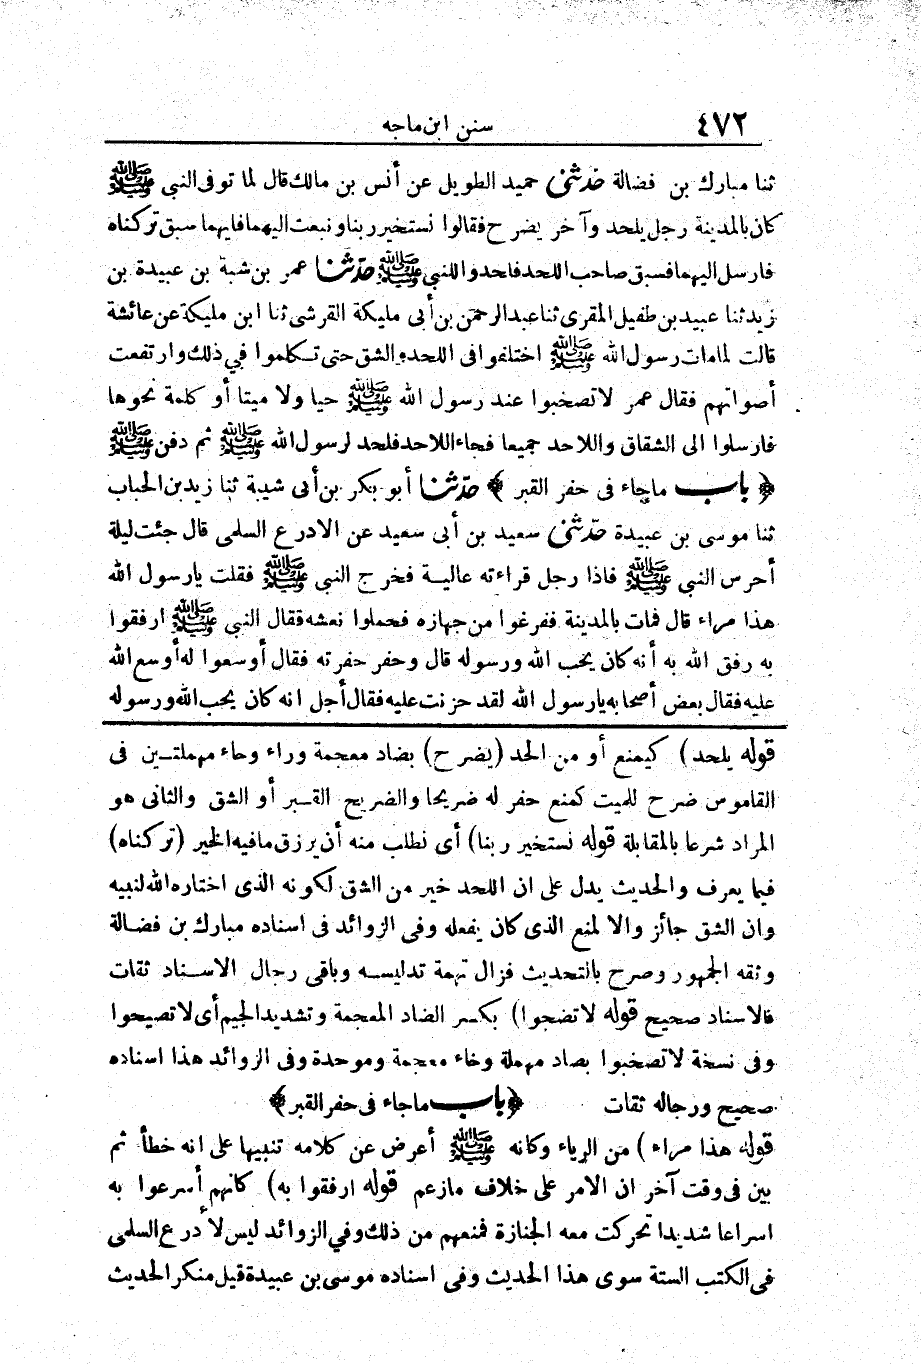 ٤٧٢ سنن ابن ماجه
ثنا مبارك بن فضالة حدثنى حميد الطويل عن أنس بن مالك قال لما توفى النبى ﷺ
كان بالمدينة رجل يلحد وآخر يضرح فقالوا نستخير ربنا ونبعت اليهما فايهما سبق تركناه
فارسل اليهما فسبق صاحب اللحد فلحدوا للنبى ﷺ حدثنا عمر بن شبة بن عبيدة بن
زيد ثنا عبيد بن طفيل المقرى ثنا عبد الرحمن بن أبى مليكة القرشى ثنا ابن مليكة عن عائشة
قالت لما مات رسول الله ﷺ اختلفوا فى اللحد والشق حتى تكلموا في ذلك وارتفعت
أصواتهم فقال عمر لا تصخبوا عند رسول الله ﷺ حيا ولا ميتا أو كلمة نحوها
فارسلوا الى الشقاق واللاحد جميعا فجاء اللاحد فلحد لرسول الله ﷺ ثم دفن ﷺ
﴿ باب ماجاء فى حفر القبر ﴾ حدثنا أبو بكر بن أبى شيبة ثنا زيد بن الحباب
ثنا موسى بن عبيدة حدثنى سعيد بن أبى سعيد عن الادرع السلمى قال جئت ليلة
أحرس النبى ﷺ فاذا رجل قراءته عالية فخرج النبى ﷺ فقلت يارسول الله
هذا مراء قال فمات بالمدينة ففرغوا من جهازه فحملوا نعشه فقال النبى ﷺ ارفقوا
به رفق الله به أنه كان يحب الله ورسوله قال وحفر حفرته فقال أوسعوا له أوسع الله
عليه فقال بعض أصحابه يارسول الله لقد حزنت عليه فقال أجل انه كان يحب الله ورسوله
قوله يلحد) كيمنع أو من الحد (يضرح) بضاد معجمة وراء وحاء مهملتين فى
القاموس ضرح للميت كمنع حفر له ضريحا والضريح القبر أو الشق والثانى هو
المراد شرعا بالمقابلة قوله نستخير ربنا) أى نطلب منه أن يرزق مافيه الخير (تركناه)
فيما يعرف والحديث يدل على ان اللحد خير من الشق لكونه الذى اختاره الله لنبيه
وان الشق جائز والا لمنع الذى كان يفعله وفى الزوائد فى اسناده مبارك بن فضالة
وثقه الجمهور وصرح بالتحديث فزال تهمة تدليسه وباقى رجال الاسناد ثقات
فالاسناد صحيح قوله لا تضجوا) بكسر الضاد المعجمة وتشديد الجيم أى لا تصيحوا
وفى نسخة لا تصخبوا بصاد مهملة وخاء معجمة وموحدة وفى الزوائد هذا اسناده
صحيح ورجاله ثقات ﴿باب ماجاء فى حفر القبر﴾
قوله هذا مراء) من الرياء وكانه ﷺ أعرض عن كلامه تنبيها على انه خطأ ثم
بين فى وقت آخر ان الامر على خلاف مازعم قوله ارفقوا به) كانهم أسرعوا به
اسراعا شديدا تحركت معه الجنازة فمنعهم من ذلك وفي الزوائد ليس لأدرع السلمى
فى الكتب الستة سوى هذا الحديث وفى اسناده موسى بن عبيدة قيل منكر الحديث